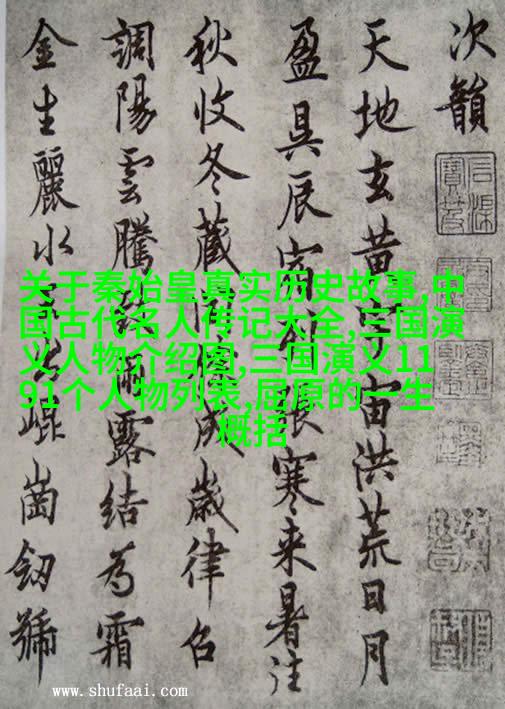 关于秦始皇真实历史故事,中
国古代名人传记大全,三国演
义人物介绍图,三国演义11
91个人物列表,屈原的一生
概括
次韻
天地玄黄宙洪荒日月
盈昃辰宿張寒来暑往
秋收冬藏成歲律召
調陽雲騰露結為霜
金生麗水崑岡劒號
www.shufaai.com